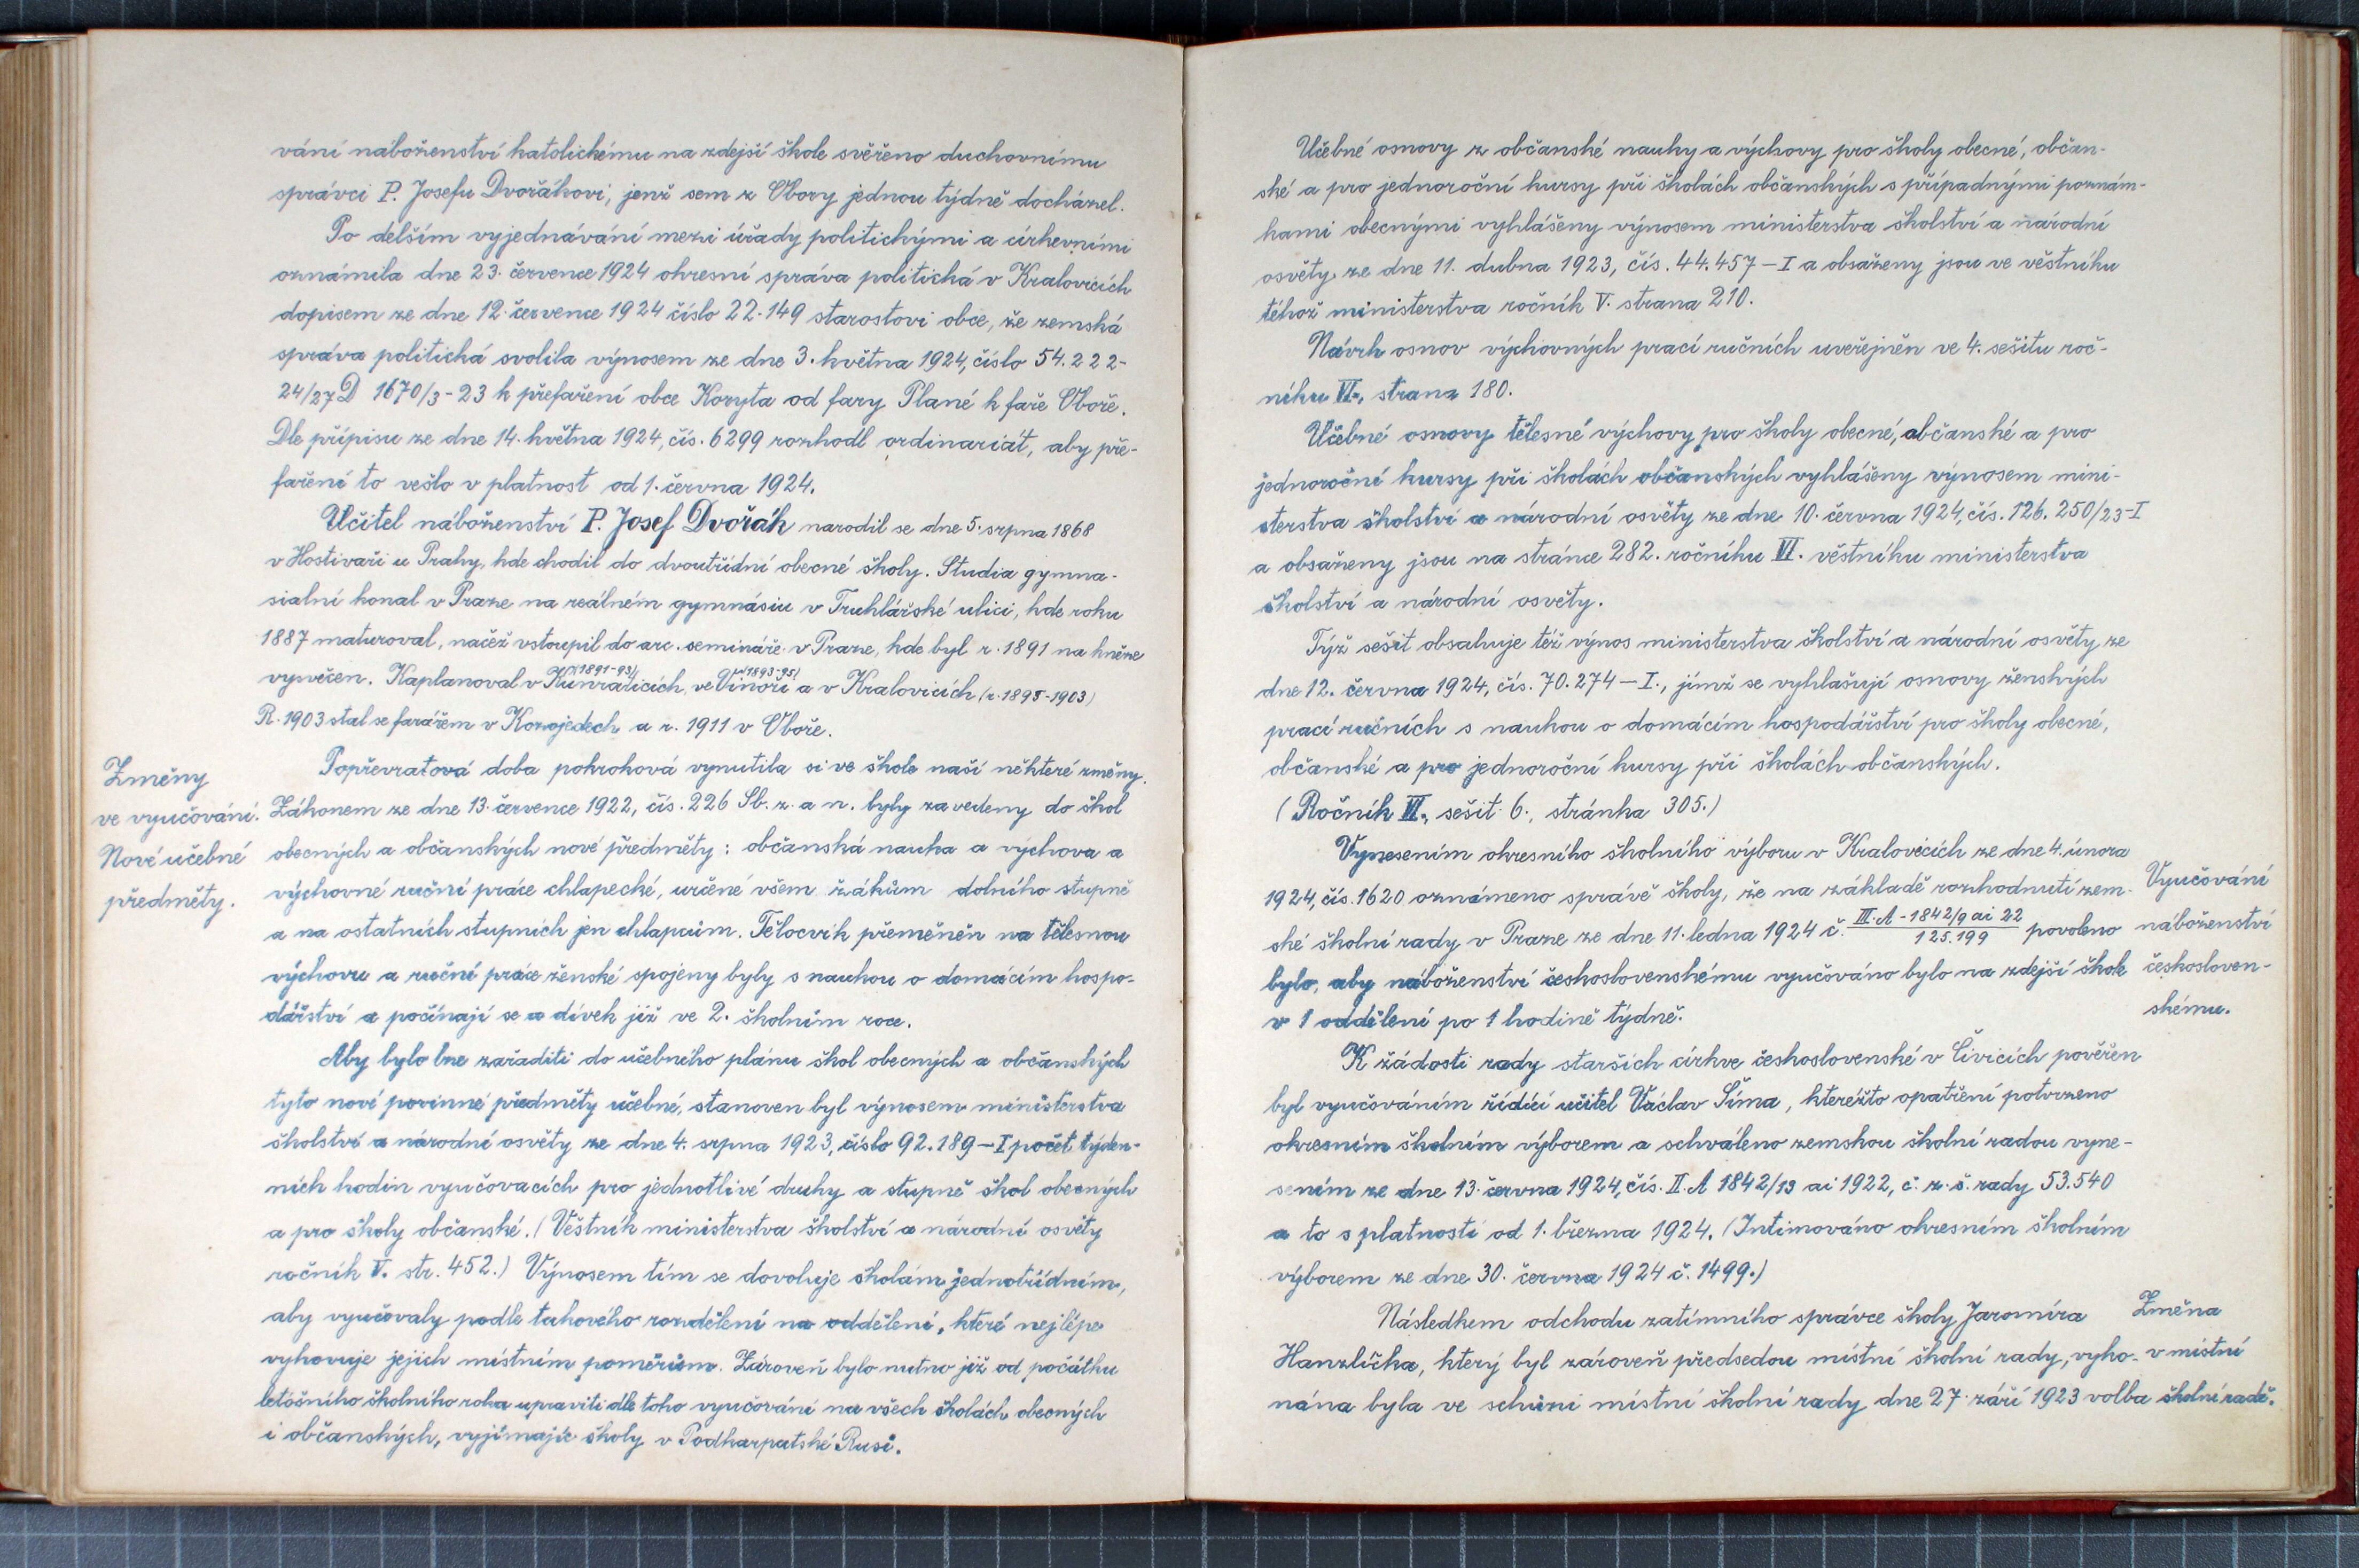 vání náboženství katolickému na zdejší škole svěřeno duchovnímu
správci P. Josefu Dvořákovi, jenž sem z Obory jednou týdně docházel.
Po delším vyjednávání mezi úřady politickými a církevními
oznámila dne 23. července 1924 okresní správa politická v Kralovicích
dopisem ze dne 12. července 1924 číslo 22.149 starostovi obce, že zemská
správa politická svolila výnosem ze dne 3. května 1924, číslo 54.222-
24/27 D 1670/3-23 k přefaření obce Koryta od fary Plané k faře Oboře.
Dle přípisu ze dne 14. května 1924, čís. 6299 rozhodl ordinariát, aby pře-
faření to vešlo v platnost od 1. června 1924.
Učitel náboženství P. Josef Dvořák narodil se dne 5. srpna 1868
v Hostivaři u Prahy, kde chodil do dvoutřídní obecné školy. Studia gymna-
sialní konal v Praze na reálném gymnásiu v Truhlářské ulici, kde roku
1887 maturoval, načež vstoupil do arc. semináře v Praze, kde byl r. 1891 na kněze
vysvěcen. Kaplanoval v Kunraticích (1891-93), ve Vinoři (1893-95) a v Kralovicích (r. 1895-1903)
R. 1903 stal se farářem v Kozojedech a r. 1911 v Oboře.
Změny
ve vyučování.
Nové učebné
předměty.
Popřevratová doba pokroková vynutila si ve škole naší některé změny.
Zákonem ze dne 13. července 1922, čís. 226 Sb. z. a n. byly zavedeny do škol
obecných a občanských nové předměty: občanská nauka a výchova a
výchovné ruční práce chlapecké, určené všem žákům dolního stupně
a na ostatních stupních jen chlapcům. Tělocvik přeměněn na tělesnou
výchovu a ruční práce ženské spojeny byly s naukou o domácím hospo-
dářství a počínají se u dívek již ve 2. školním roce.
Aby bylo lze zařaditi do učebného plánu škol obecných a občanských
tyto nové povinné předměty učebné, stanoven byl výnosem ministerstva
školství a národní osvěty ze dne 4. srpna 1923, číslo 92.189-I počet týden-
ních hodin vyučovacích pro jednotlivé druhy a stupně škol obecných
a pro školy občanské. (Věstník ministerstva školství a národní osvěty
ročník V. str. 452.) Výnosem tím se dovoluje školám jednotřídním,
aby vyučovaly podle takového rozdělení na oddělení, které nejlépe
vyhovuje jejich místním poměrům. Zároveň bylo nutno již od počátku
letošního školního roku upraviti dle toho vyučování na všech školách obecných
i občanských, vyjímajíc školy v Podkarpatské Rusi.
Učebné osnovy z občanské nauky a výchovy pro školy obecné, občan-
ské a pro jednoroční kursy při školách občanských s případnými poznám-
kami obecnými vyhlášeny výnosem ministerstva školství a národní
osvěty ze dne 11. dubna 1923, čís. 44.457-I a obsaženy jsou ve věstníku
téhož ministerstva ročník V. strana 210.
Návrh osnov výchovných prací ručních uveřejněn ve 4. sešitu roč-
níku VI., strana 180.
Učebné osnovy tělesné výchovy pro školy obecné, občanské a pro
jednoroční kursy při školách občanských vyhlášeny výnosem mini-
sterstva školství a národní osvěty ze dne 10. června 1924, čís. 126.250/23-I
a obsaženy jsou na stránce 282. ročníku VI. věstníku ministerstva
školství a národní osvěty.
Týž sešit obsahuje též výnos ministerstva školství a národní osvěty ze
dne 12. června 1924, čís. 70.274-I., jímž se vyhlašují osnovy ženských
prací ručních s naukou o domácím hospodářství pro školy obecné,
občanské a pro jednoroční kursy při školách občanských.
(Ročník VI., sešit 6., stránka 305.)
Vynesením okresního školního výboru v Kralovicích ze dne 4. února
1924, čís. 1620 oznámeno správě školy, že na základě rozhodnutí zem-
ské školní rady v Praze ze dne 11. ledna 1924 č. III.A-1842/9 ai 22 / 125.199 povoleno
bylo, aby náboženství československému vyučováno bylo na zdejší škole
v 1 oddělení po 1 hodině týdně.
Vyučování
náboženství
českosloven-
skému.
K žádosti rady starších církve československé v Čivicích pověřen
byl vyučováním řídící učitel Václav Šíma, kteréžto opatření potvrzeno
okresním školním výborem a schváleno zemskou školní radou vyne-
sením ze dne 13. června 1924, čís. II. A 1842/13 ai 1922, č. z. š. rady 53.540
a to s platností od 1. března 1924. (Intimováno okresním školním
výborem ze dne 30. června 1924 č. 1499.)
Následkem odchodu zatímního správce školy Jaromíra
Hanzlíčka, který byl zároveň předsedou místní školní rady, vyko-
nána byla ve schůzi místní školní rady dne 27. září 1923 volba
Změna
v místní
školní radě.